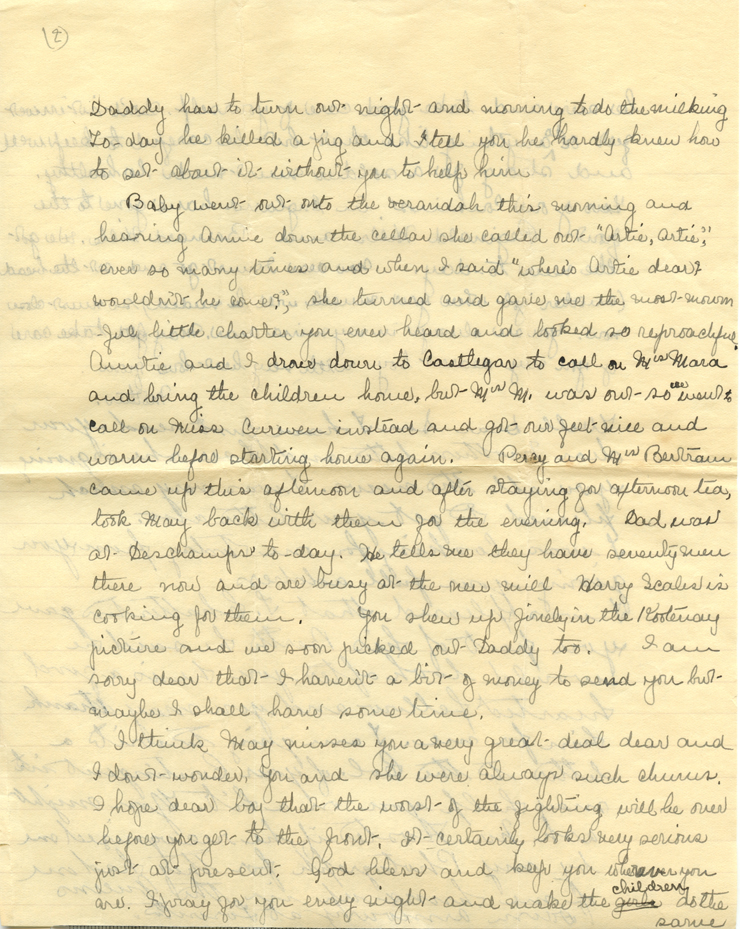 2
Daddy has to turn out night and morning to do the milking
To-day he killed a pig and I tell you he hardly knew how
to set about it without you to help him
Baby went out onto the verandah this morning and
hearing Annie down the cellar she called out "Artie, Artie,"
ever so many times and when I said "where's Artie dear?
wouldn't he come?", she turned and gave me the most mourn
-ful little chatter you ever heard and looked so reproachful.
Auntie and I drove down to Castlegar to call on Mrs Mara
and bring the children home, but Mrs M. was out so we went to
call on Miss Curwen instead and got our feet nice and
warm before starting home again. Percy and Mrs Bertram
came up this afternoon and after staying for afternoon tea,
took May back with them for the evening. Dad was
at Deschamps to-day. He tells me they have seventy men
there now and are busy at the new mill Harry Scales is
cooking for them. You shew up finely in the Kootenay
picture and we soon picked out Daddy too. I am
sorry dear that I haven't a bit of money to send you but
maybe I shall have some time.
I think May misses you a very great deal dear and
I don't wonder, you and she were always such chums.
I hope dear boy that the worst of the fighting will be over
before you get to the front. It certainly looks very serious
just at present. God bless and keep you wherever you
are. I pray for you every night and make the girls children do the
same